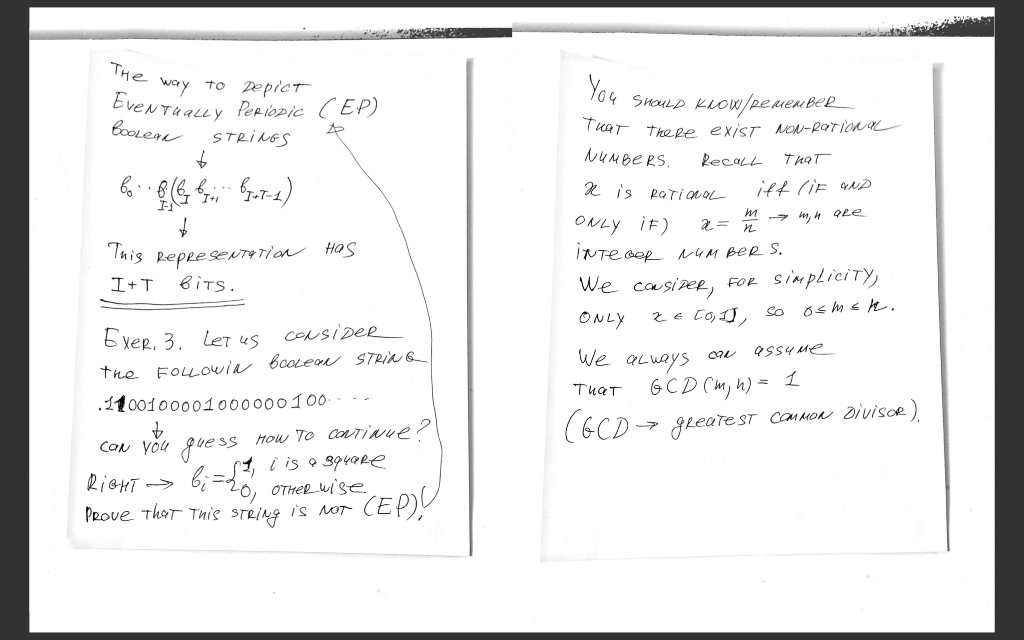 THE WAY TO DEPICT
EVENTUALLY PERIODIC (EP)
BOOLEAN STRINGS
↓
b₀...b_{I-1}(b_I b_{I+1}...b_{I+T-1})
↓
THIS REPRESENTATION HAS
I+T BITS.
EXER. 3. LET US CONSIDER
THE FOLLOWIN BOOLEAN STRING
.1100100001000000100.....
↓
CAN YOU GUESS HOW TO CONTINUE?
RIGHT → bᵢ = { 1, i IS A SQUARE
0, OTHERWISE
PROVE THAT THIS STRING IS NOT (EP)!
YOU SHOULD KNOW/REMEMBER
THAT THERE EXIST NON-RATIONAL
NUMBERS. RECALL THAT
x IS RATIONAL iff (IF AND
ONLY IF) x = m/n → m,n ARE
INTEGER NUMBERS.
WE CONSIDER, FOR SIMPLICITY,
ONLY x ∈ [0,1], SO 0 ≤ m ≤ n.
WE ALWAYS CAN ASSUME
THAT GCD(m,n) = 1
(GCD → GREATEST COMMON DIVISOR).